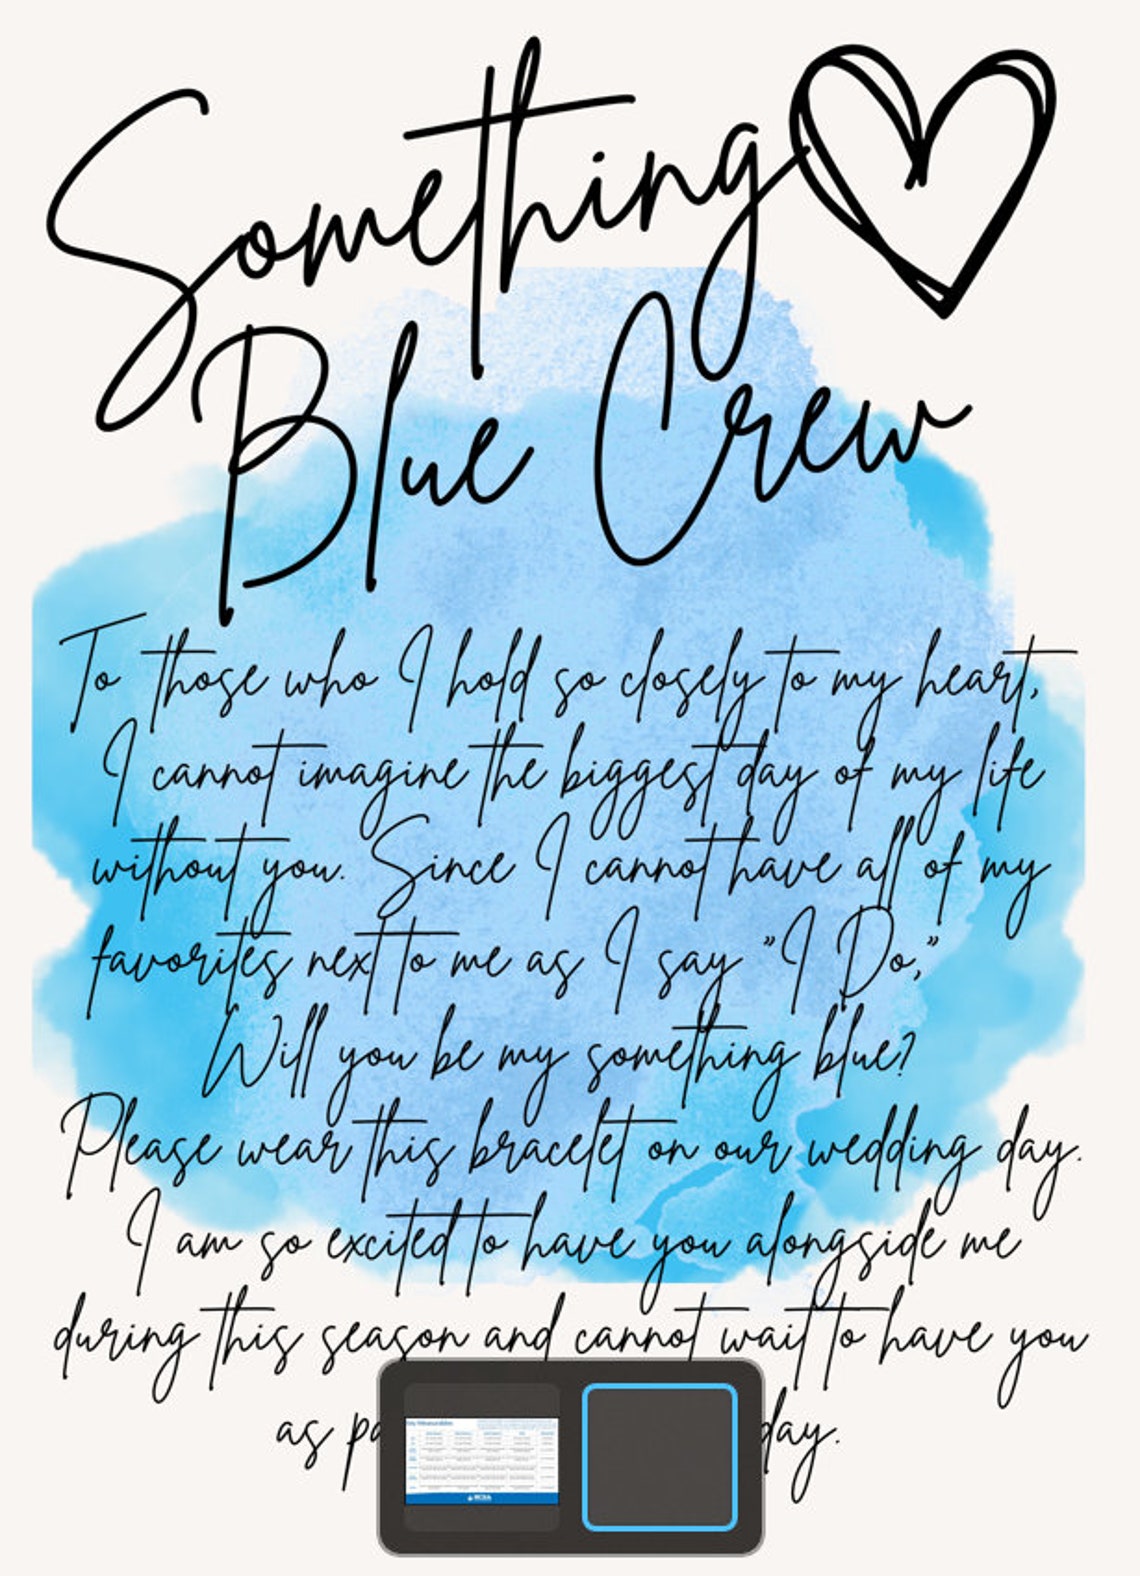 Something
Blue Crew
To those who I hold so closely to my heart,
I cannot imagine the biggest day of my life
without you. Since I cannot have all of my
favorites next to me as I say "I Do,"
Will you be my something blue?
Please wear this bracelet on our wedding day.
I am so excited to have you alongside me
during this season and cannot wait to have you
as day.